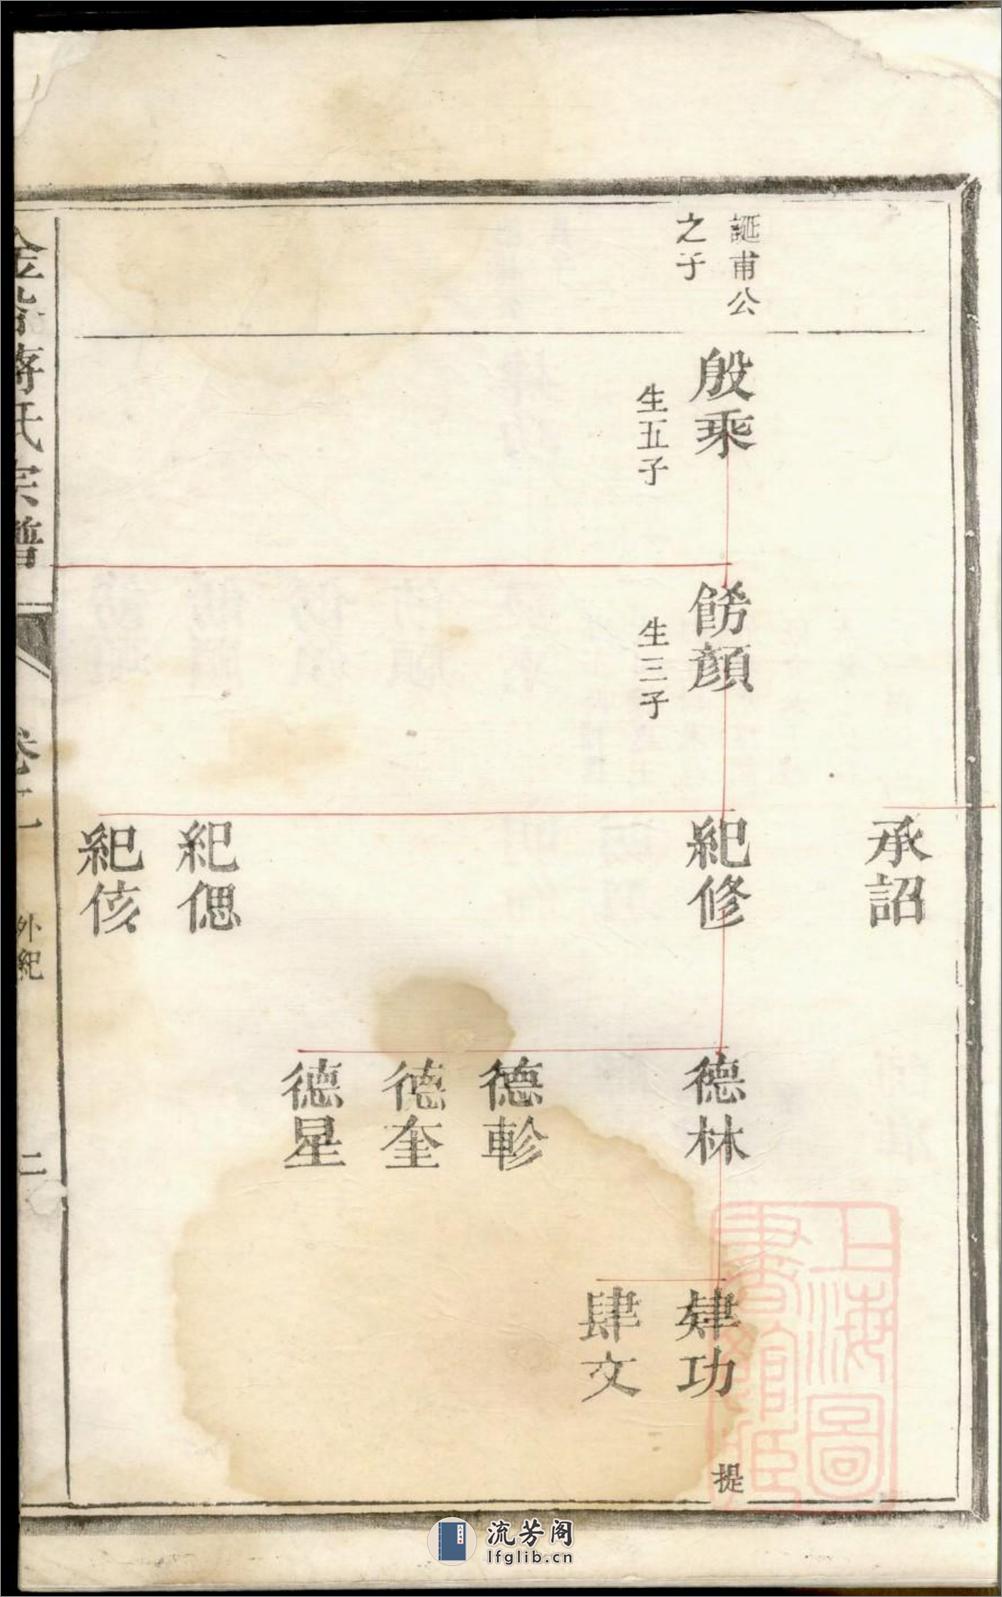 誕甫公
之子
殷乘
生五子
餝顏
生三子
承詔
紀修
紀偲
紀侅
德林
德軫
德奎
德星
肄功
肆文
提
金
蔣氏宗譜
卷二
外紀
二
上海圖
書館藏
流芳阁
lfglib.cn